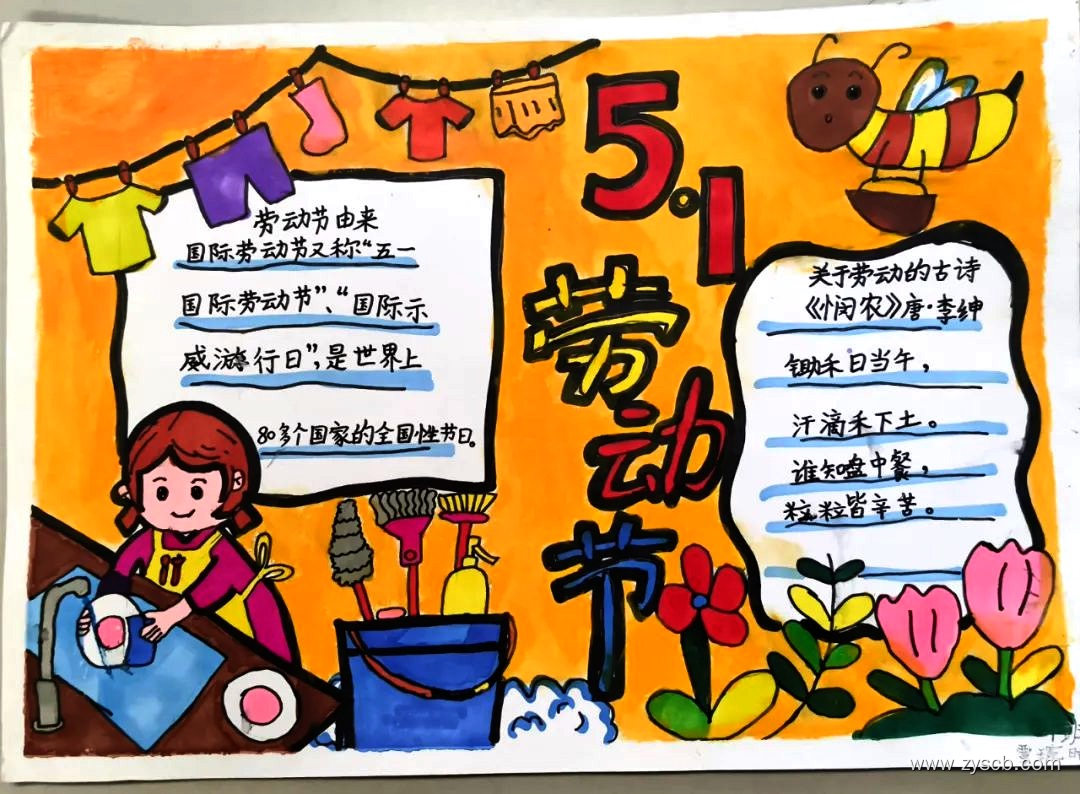 5.1
劳动节
劳动节由来
国际劳动节又称“五一
国际劳动节”、“国际示
威游行日”，是世界上
80多个国家的全国性节日。
关于劳动的古诗
《悯农》唐·李绅
锄禾日当午，
汗滴禾下土。
谁知盘中餐，
粒粒皆辛苦。
www.zyscb.com